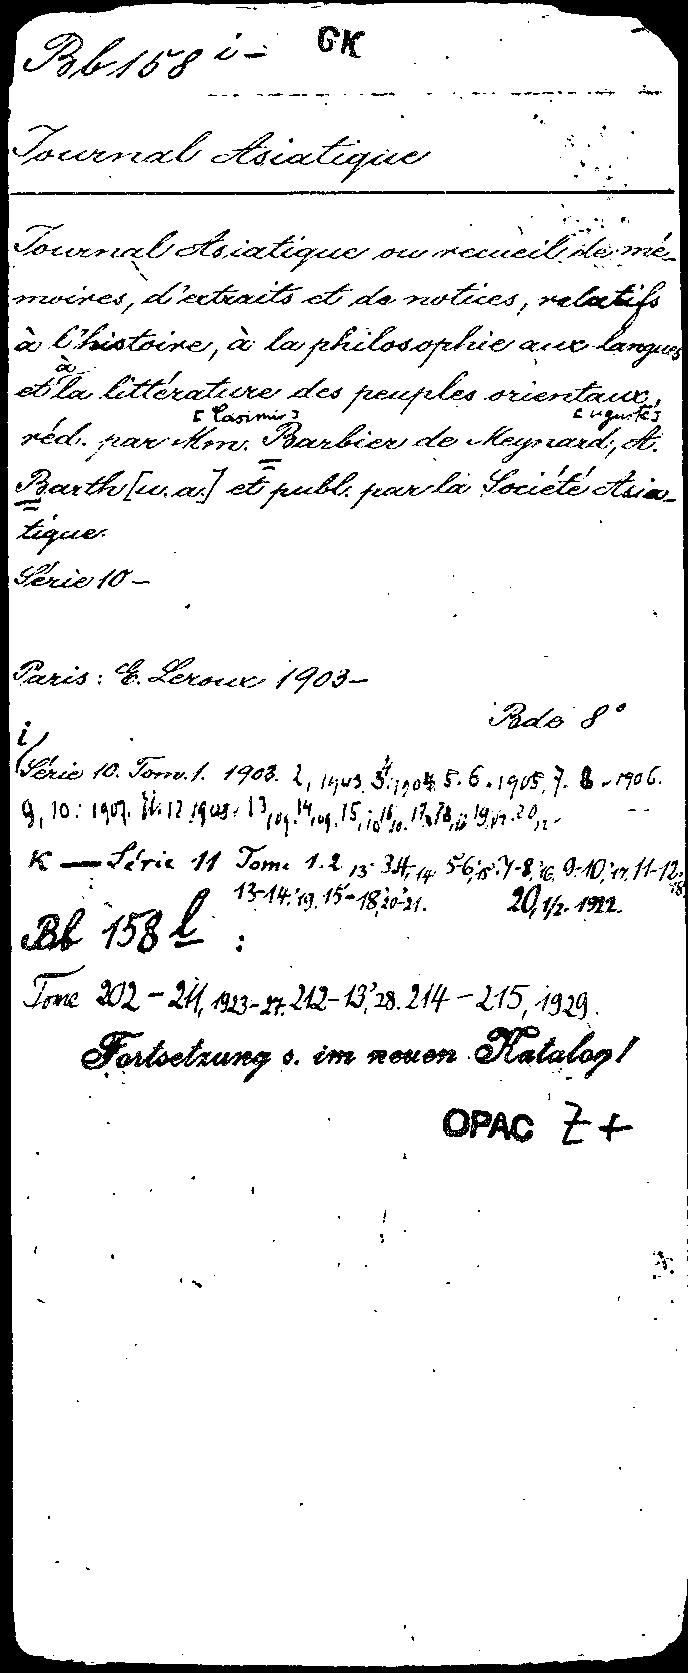 Bb 158 i - GK
Journal Asiatique
Journal Asiatique ou recueil de mé-
moires, d'extraits et de notices, relatifs
à l'histoire, à la philosophie aux langues
et à la littérature des peuples orientaux,
[Casimir] [Auguste]
réd. par Mm. Barbier de Meynard, A.
Barth [u. a.] et publ. par la Société Asia-
tique.
Série 10 -
Paris: E. Leroux 1903 -
Bde 8°
i
Série 10. Tom. 1. 1903. 2, 1903. 3. 4. 1904. 5. 6. 1905, 7. 8. 1906.
9, 10: 1907. 11. 12 1908. 13, 09. 14, 09. 15, 10 16, 10. 17, 18, 19, 20, 12.
K — Série 11 Tome 1. 2, 13. 3.4, 14 5-6,'15. 7-8,'16. 9-10,'17. 11-12,'18
13-14,'19. 15-18,'20-'21. 20, 1/2. 1922.
Bb 158 l :
Tome 202 - 211, 1923-27. 212-13,'28. 214 - 215, 1929.
Fortsetzung s. im neuen Katalog!
OPAC Z +